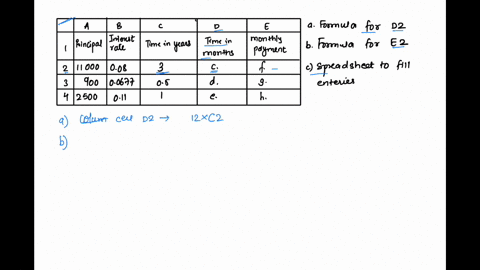 A B C D E
1 Rincpal Interest rate Time in years Time in months monthly payment
2 11000 0.08 3 c. f
3 900 0.0677 0.5 d. g.
4 2500 0.11 1 e. h.
a. Formula for D2
b. Formula for E2
c) Spreadsheet to fill
enteries
a) Column cell D2 → 12×C2
b)